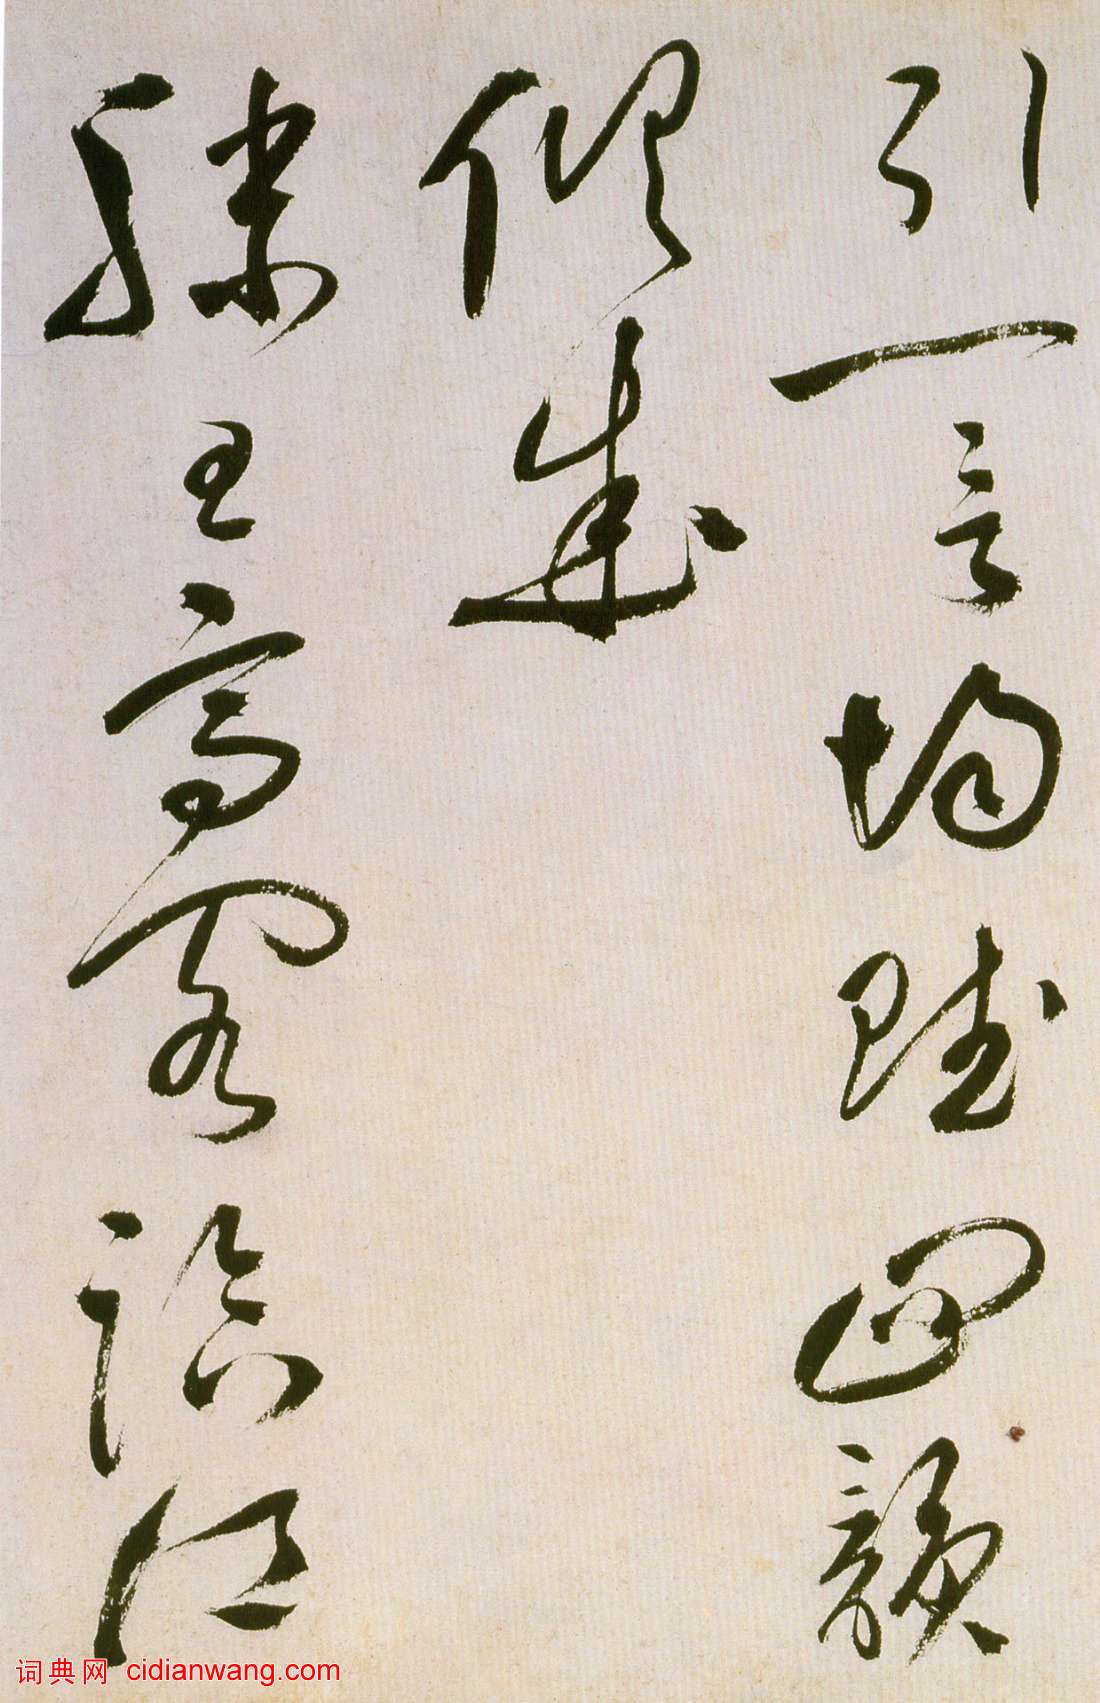 引一言均賦四韻
俱成
滕王高閣臨江
词典网 cidianwang.com